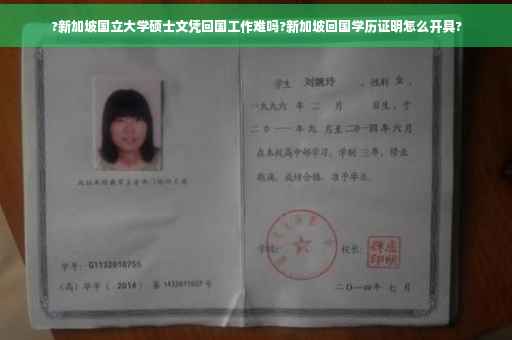 ?新加坡国立大学硕士文凭回国工作难吗?新加坡回国学历证明怎么开具?
学生 刘婉玲 ，性别 女 ，
一九九六 年 二 月 日生，于
二〇一一年九 月至二〇一四年六月
在本校高中部学习，学制 三年，修业
期满，成绩合格，准予毕业。
学号：G1132010755
（高）毕字（ 2014 ）第 1432011027 号
学校：
校长：
二〇一四年 七 月